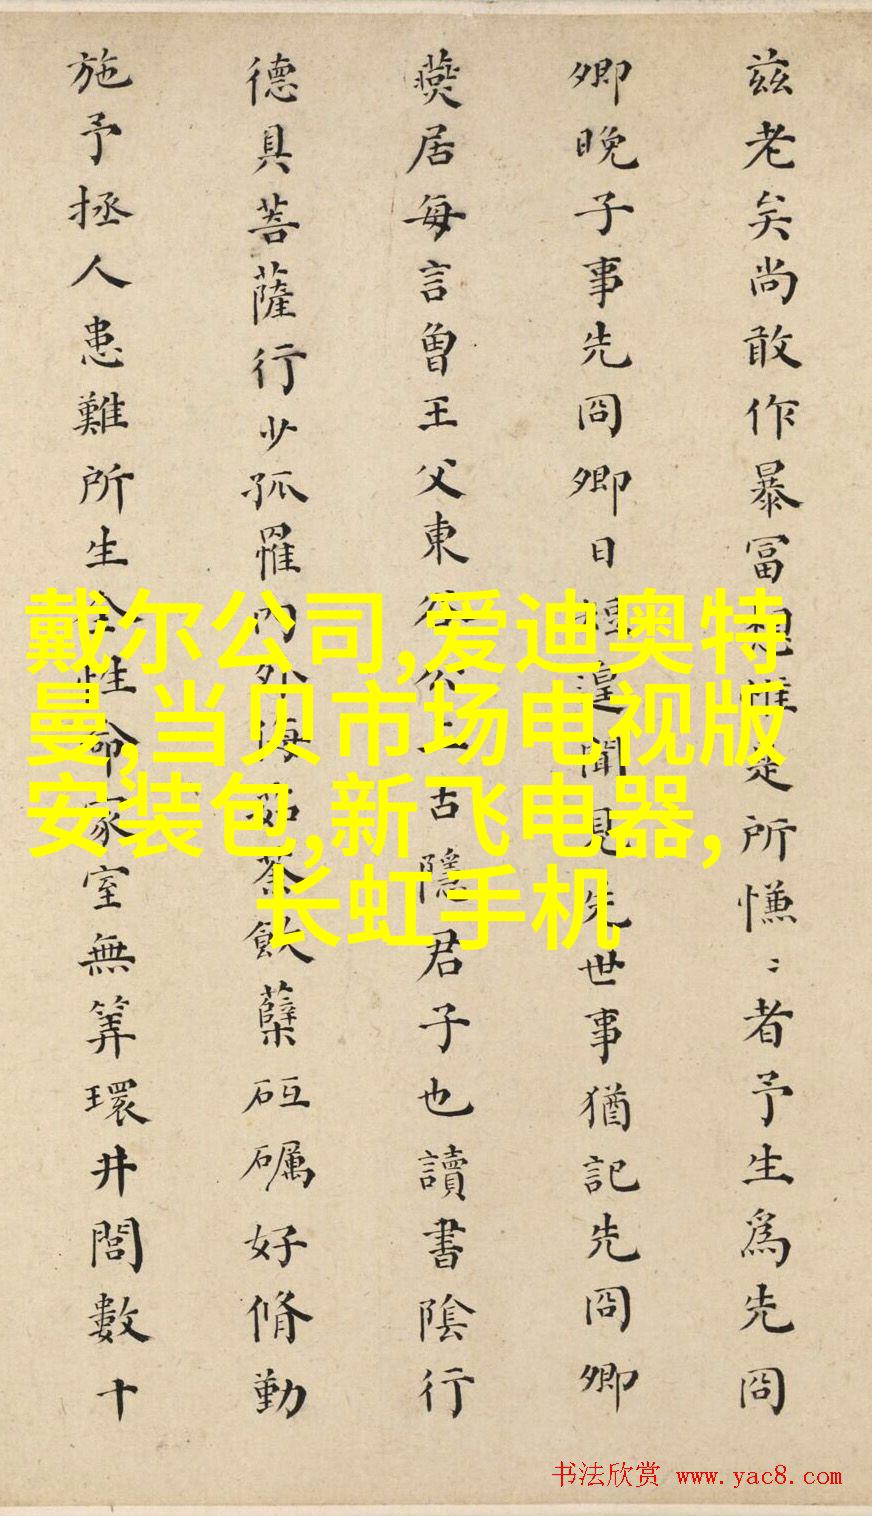 兹老矣尚敢作暴富想惟是所慊〻者予生為先冏
卿晚子事先冏卿日遑聞見先世事猶記先冏卿
燕居每言曾王父東古隱君子也讀書陰行
德具菩薩行少孤罹内外侮茹荼飲蘖砥礪好脩勤
施予拯人患難所生全性命家室無筭環井閭數十
戴尔公司,爱迪奥特
曼,当贝市场电视版
安装包,新飞电器,
长虹手机
书法欣赏 www.yac8.com